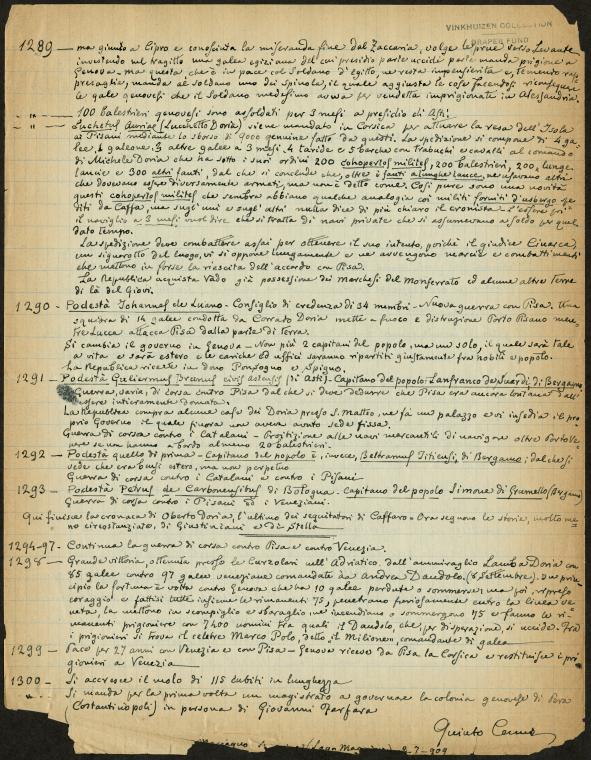 VINKHUIZEN COLLECTION
DRAPER FUND
1289 — ma giunto a Cipro e conosciuta la miseranda fine dal Zaccaria, volge le prue verso Levante
investendo nel tragitto una galea egiziana del cui presidio parte uccide parte manda prigione a
Genova — ma questa che è in pace col Soldano d'Egitto, ne resta impensierita e, temendo rap
presaglie, manda al Soldano uno di Spinola, il quale aggiusta le cose facendosi
le galee genovesi che il Soldano medesimo aveva per vendetta imprigionate in Alessandria.
" — 100 Balestrieri genovesi sono assoldati per 3 mesi a presidio di Asti!
" — Luchetus Auriae (Lucchetto Doria) viene mandato in Corsica per attuare la resa dell'Isola
ai Pisani mediante lo sborso di lire genuine fatto da questi. La spedizione si compone di 4 ga
lee, 1 galeone, 3 altre galee a 3 mesi, 4 taride e 5 barche con trabuchi e cavalli al comando
di Michele Doria che ha sotto i suoi ordini 200 cohopertos milites, 200 balestrieri, 200 lunge
lancie e 300 altri fanti, dal che si conclude che, oltre i fanti a lunghe lance, ne usavano altri
che dovevano essere diversamente armati, ma non è detto come. Così pure sono una novità
questi cohopertos milites che sembra abbiano qualche analogia coi militi forniti d'usbergo spe
diti da Caffa, ma sugli uni e sugli altri nulla dice di più chiaro il cronista. L'essere poi
il naviglio a 3 mesi vuol dire che si tratta di navi private che si assumevano a soldo per quel
dato tempo.
La spedizione deve combattere assai per ottenere il suo intento, poichè il giudice Cinarca,
un signorotto del luogo, vi si oppone lungamente e ne avvengono marcie e combattimenti
che mettono in forse la riescita dell'accordo con Pisa.
La Republica acquista Vado già possessione dei marchesi del Monferrato ed alcune altre Terre
di là del Giovi.
1290 — Podestà Johannes de Luano — Consiglio di credenza di 34 membri — Nuova guerra con Pisa. Una
squadra di 14 galee condotta da Corrado Doria mette a fuoco e distruzione Porto Pisano men
tre Lucca attacca Pisa dalla parte di terra.
Si cambia il governo in Genova — Non più 2 capitani del popolo, ma un solo, il quale sarà tale
a vita e sarà estero e le cariche ed uffici saranno ripartiti giustamente fra nobili e popolo.
La Republica riceve in dono Ponsogno e Spigno.
1291 — Podestà Guliermus Brunus civis astensis (di Asti) — Capitano del popolo: Lanfranco de Suardi, di Bergamo
Guerra, varia, di corsa contro Pisa dal che si deve dedurre che Pisa era ancora lontana dall'
essere intieramente domata.
La Republica compra alcune case dei Doria presso S. Matteo, ne fà un palazzo e vi insedia il pro
prio Governo il quale finora non aveva avuto sede fissa.
Guerra di corsa contro i Catalani — Proibizione alle navi mercantili di navigare oltre Porto Ve
nere se non hanno a bordo almeno 20 balestrieri.
1292 — Podestà quello di prima — Capitano del popolo è, invece, Beltramus Ficiensi, di Bergamo; dal che si
vede che era bensì estero, ma non perpetuo
Guerra di corsa contro i Catalani e contro i Pisani
1293 — Podestà Petrus de Carbonensibus di Bologna — Capitano del popolo Simone di Grumello (Bergamo)
Guerra di corsa contro i Pisani ed i Veneziani.
Qui finisce la cronaca di Oberto Doria, l'ultimo dei seguitatori di Caffaro — Ora seguono le storie, molto me
no circostanziate, di Giustiniani e di Stella
1294-97 — Continua la guerra di corsa contro Pisa e contro Venezia.
1298 — Grande vittoria, ottenuta presso le Curzolari nell'Adriatico, dall'ammiraglio Lamba Doria con
85 galee contro 97 galee veneziane comandate da Andrea Dandolo. (8 Settembre). In prin
cipio la fortuna è volta contro Genova che ha 10 galee perdute o sommerse, ma poi, ripreso
coraggio e fattisi tutte insieme le rimanenti 75, penetrano furiosamente entro la linea ve
neta, la mettono in scompiglio e sbaraglio, ne incendiano o sommergono 75 e fanno le ri
manenti prigioniere con 7400 uomini fra quali il Dandolo, che, per disperazione, si uccide. Fra
i prigionieri si trova il celebre Marco Polo, detto il Milione, comandante di galea
1299 — Pace per 27 anni con Venezia e con Pisa — Genova riceve da Pisa la Corsica e restituisce i pri
gionieri a Venezia
1300 — Si accresce il molo di 115 cubiti in lunghezza
" — Si manda per la prima volta un magistrato a governare la colonia genovese di Pera
(Costantinopoli) in persona di Giovanni
Quinto Cenni
(Lago Maggiore) 2-7-909